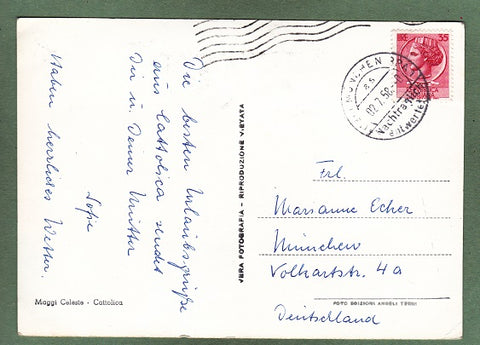 Die besten Urlaubsgrüße
aus Cattolica sendet
Dir u. Deiner Mutter
Sofie
Haben herrliches Wetter.
Maggi Celeste - Cattolica
VERA FOTOGRAFIA - RIPRODUZIONE VIETATA
35
MÜNCHEN
02.7.58
Nachträglich
entwertet
Frl.
Marianne Ecker
München
Volkartstr. 4a
FOTO EDIZIONI ANGELI TERNI
Deutschland